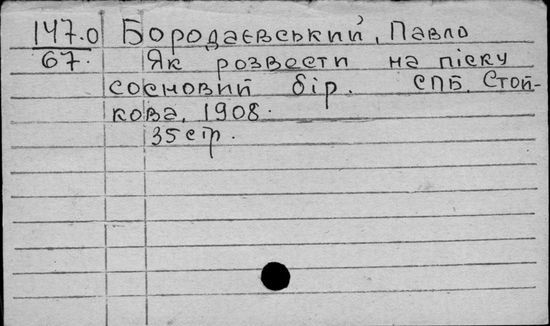 147.0 Бородаєвський, Павло
67. Як розвести на піску
сосновий бір. СПБ. Стой-
кова, 1908.
35 стр.